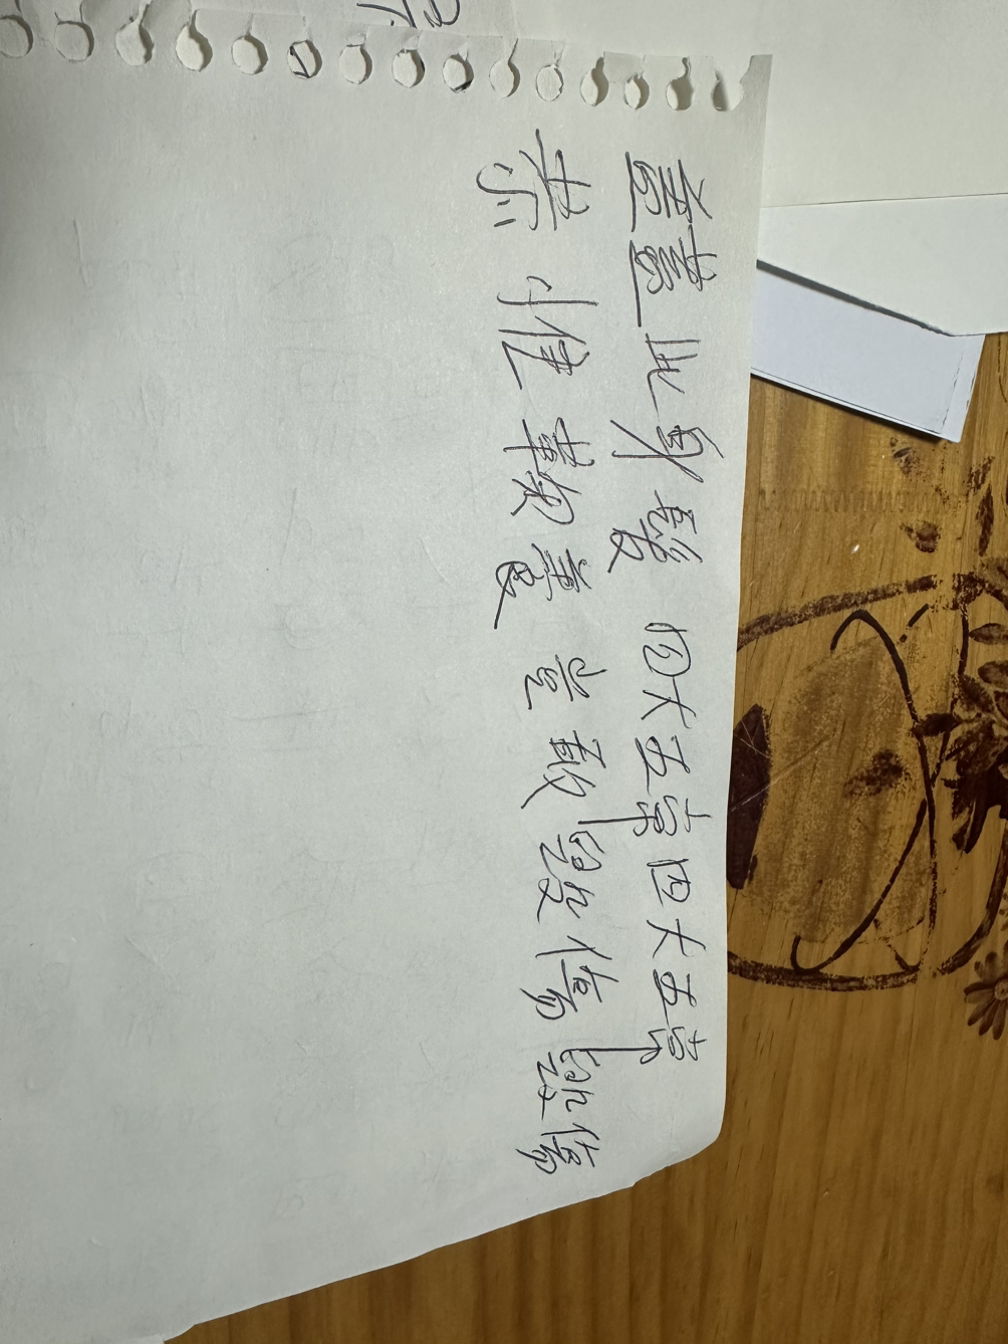 盖蓋此身髮四大五常四大五常
恭惟鞠養豈敢毀傷毀傷